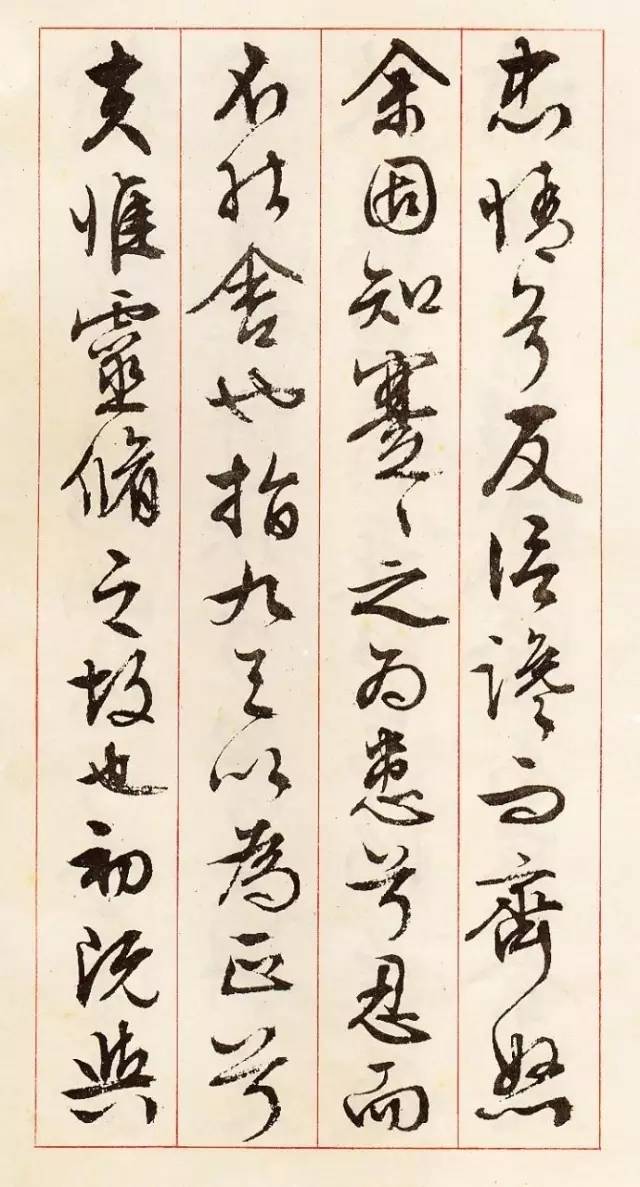 忠情兮反信讒而齌怒
余固知謇々之為患兮忍而
不能舍也指九天以為正兮
夫惟靈脩之故也初既與